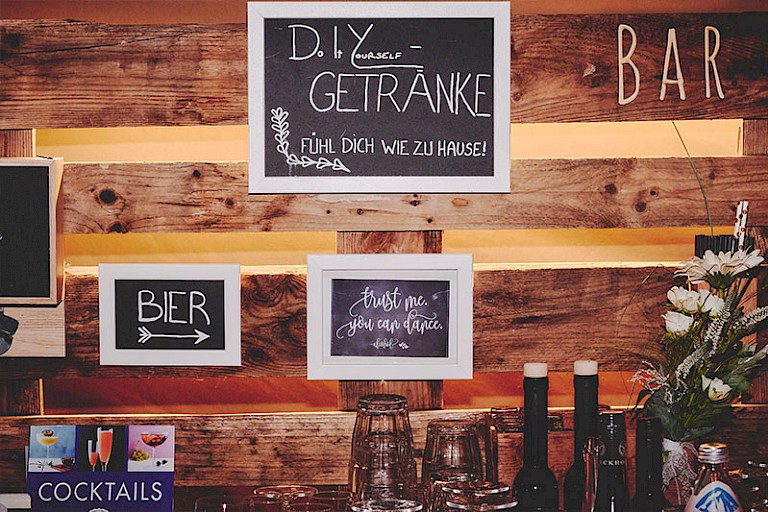 Do It Yourself -
GETRÄNKE
FÜHL DICH WIE ZU HAUSE!
BAR
BIER
trust me.
you can dance.
COCKTAILS